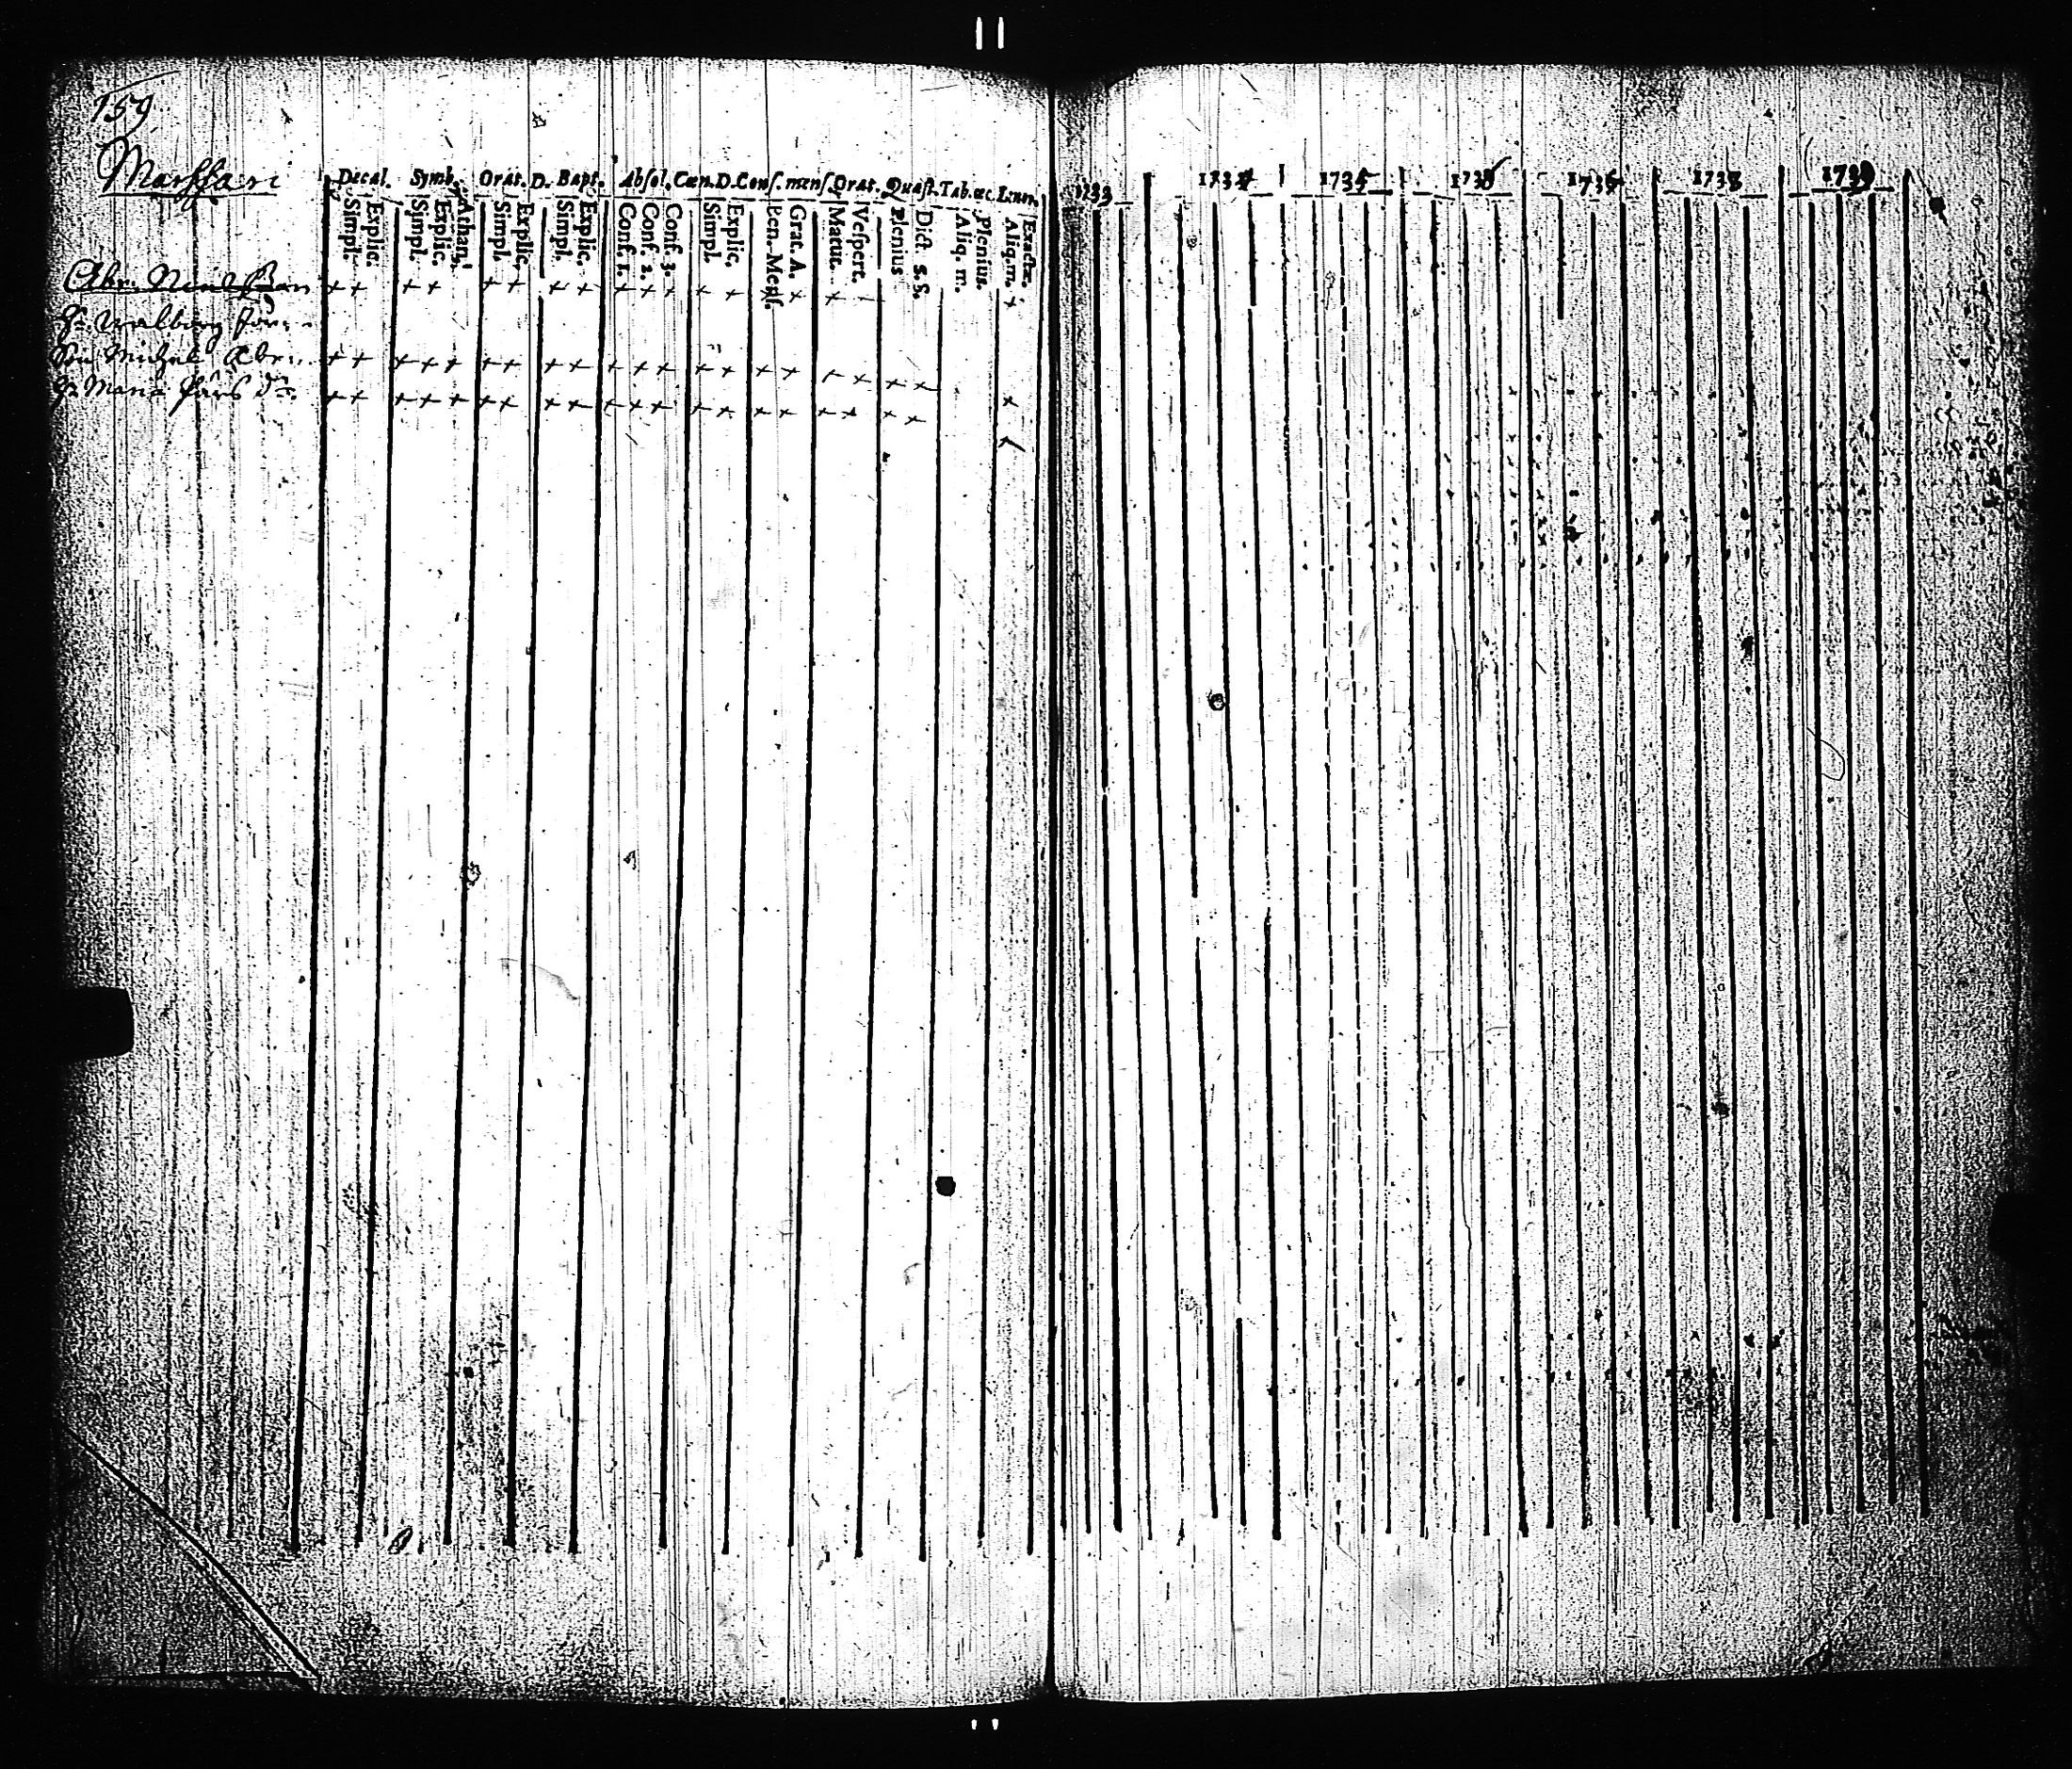 159
Marssari
Decal. Symb. Orat. D. Bapt. Absol. Cœn. D. Conf. mens. Orat. Quæst. Tab. œc.
Simpl. Explic. Simpl. Explic. Athan. Simpl. Explic. Simpl. Explic. Conf. 1. Conf. 2. Conf. 3. Simpl. Explic. Ben. Mens. Grat. A. Matut. Vespert. Plenius Dict. S. S. Aliq. m. Plenius. Aliq. m. Exactæ.
1733 1734 1735 1736 1738 1739
+ + + + + + + + + + + + + + + +
H. Walborg
Son Michel Abr.
+ + + + + + + + + + + + + + + + + + + +
H. Maria Lars dr.
+ + + + + + + + + + + + + + + + + + + +